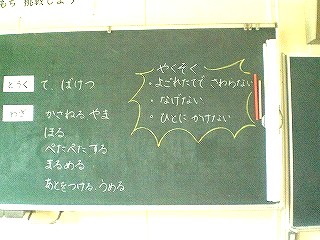 もち 挑戦しよう
どうぐ て、ばけつ
わざ かさねる、やま
ほる
ぺたぺたする
まるめる
あとをつける、うめる
やくそく
・よごれたてで さわらない
・なげない
・ひとに かけない